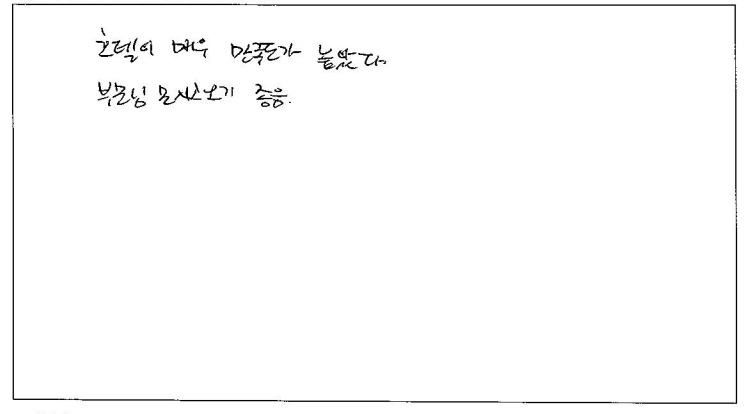 호텔이 매우 만족도가 높았다.
부모님 모시고오기 좋음.